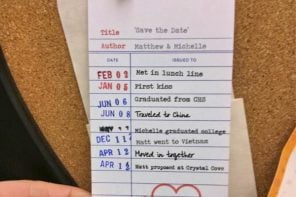 Title 'Save the Date'
Author Matthew & Michelle
DATE ISSUED TO
FEB 02 Met in lunch line
JAN 05 First kiss
JUN 06 Graduated from CHS
JUN 08 Traveled to China
Michelle graduated college
DEC 11 Matt went to Vietnam
APR 12 Moved in together
APR Matt proposed at Crystal Cove